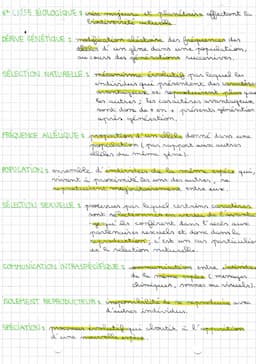 6e CRISE BIOLOGIQUE : crise majeure et planétaire affectant la
biodiversité actuelle
DÉRIVE GÉNÉTIQUE : modification aléatoire des fréquences des
allèles d'un gène dans une population,
au cours des générations successives.
SÉLECTION NATURELLE : mécanisme évolutif par lequel les
individus qui présentent des
et reproduisent plus que
les autres ; les caractères avantageux
sont donc de + en + présents génération
après génération.
FRÉQUENCE ALLÉLIQUE : proportion d'un allèle donné dans une
population (par rapport aux autres
allèles du même gène).
POPULATION : ensemble d'individus de la même espèce qui,
vivant à proximité les uns des autres, se
reproduisent préférentiellement entre eux.
SÉLECTION SEXUELLE : processus par lequel certains caractères
sont sélectionnés en vertu de l'avantage
qu'ils confèrent dans l'accès aux
partenaires sexuels et donc dans la
reproduction ; c'est un cas particulier
de la sélection naturelle.
COMMUNICATION INTRASPÉCIFIQUE : communication entre individus
de la même espèce (messages
chimiques, sonores ou visuels).
ISOLEMENT REPRODUCTEUR : impossibilité de se reproduire avec
d'autres individus.
SPÉCIATION : processus évolutif qui aboutit à l'apparition
d'une nouvelle espèce.